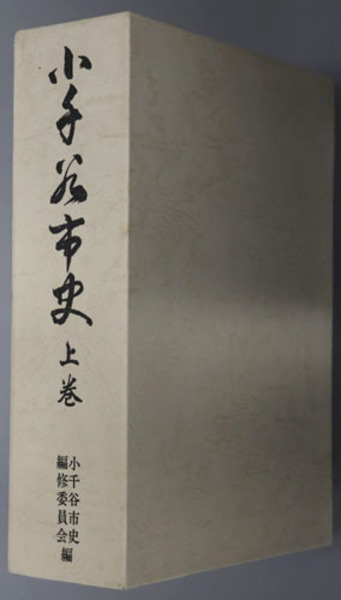 小千谷市史
上巻
小千谷市史
編修委員会編